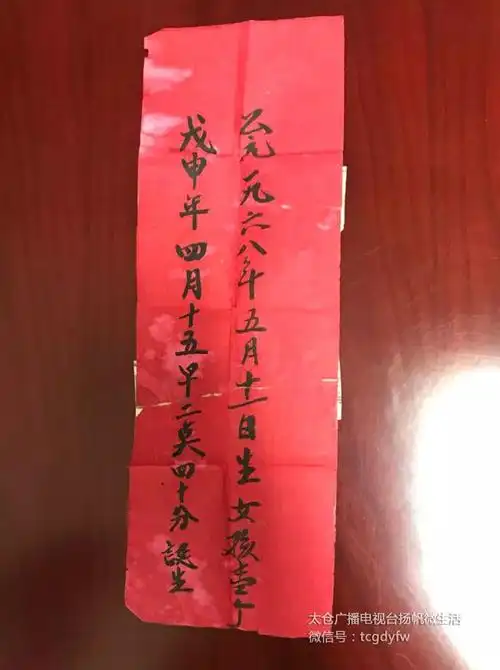 公元一九六八年五月十一日生女孩壹个
戊申年四月十五早二奌四十分誕生
太仓广播电视台扬帆微生活
微信号：tcgdyfw